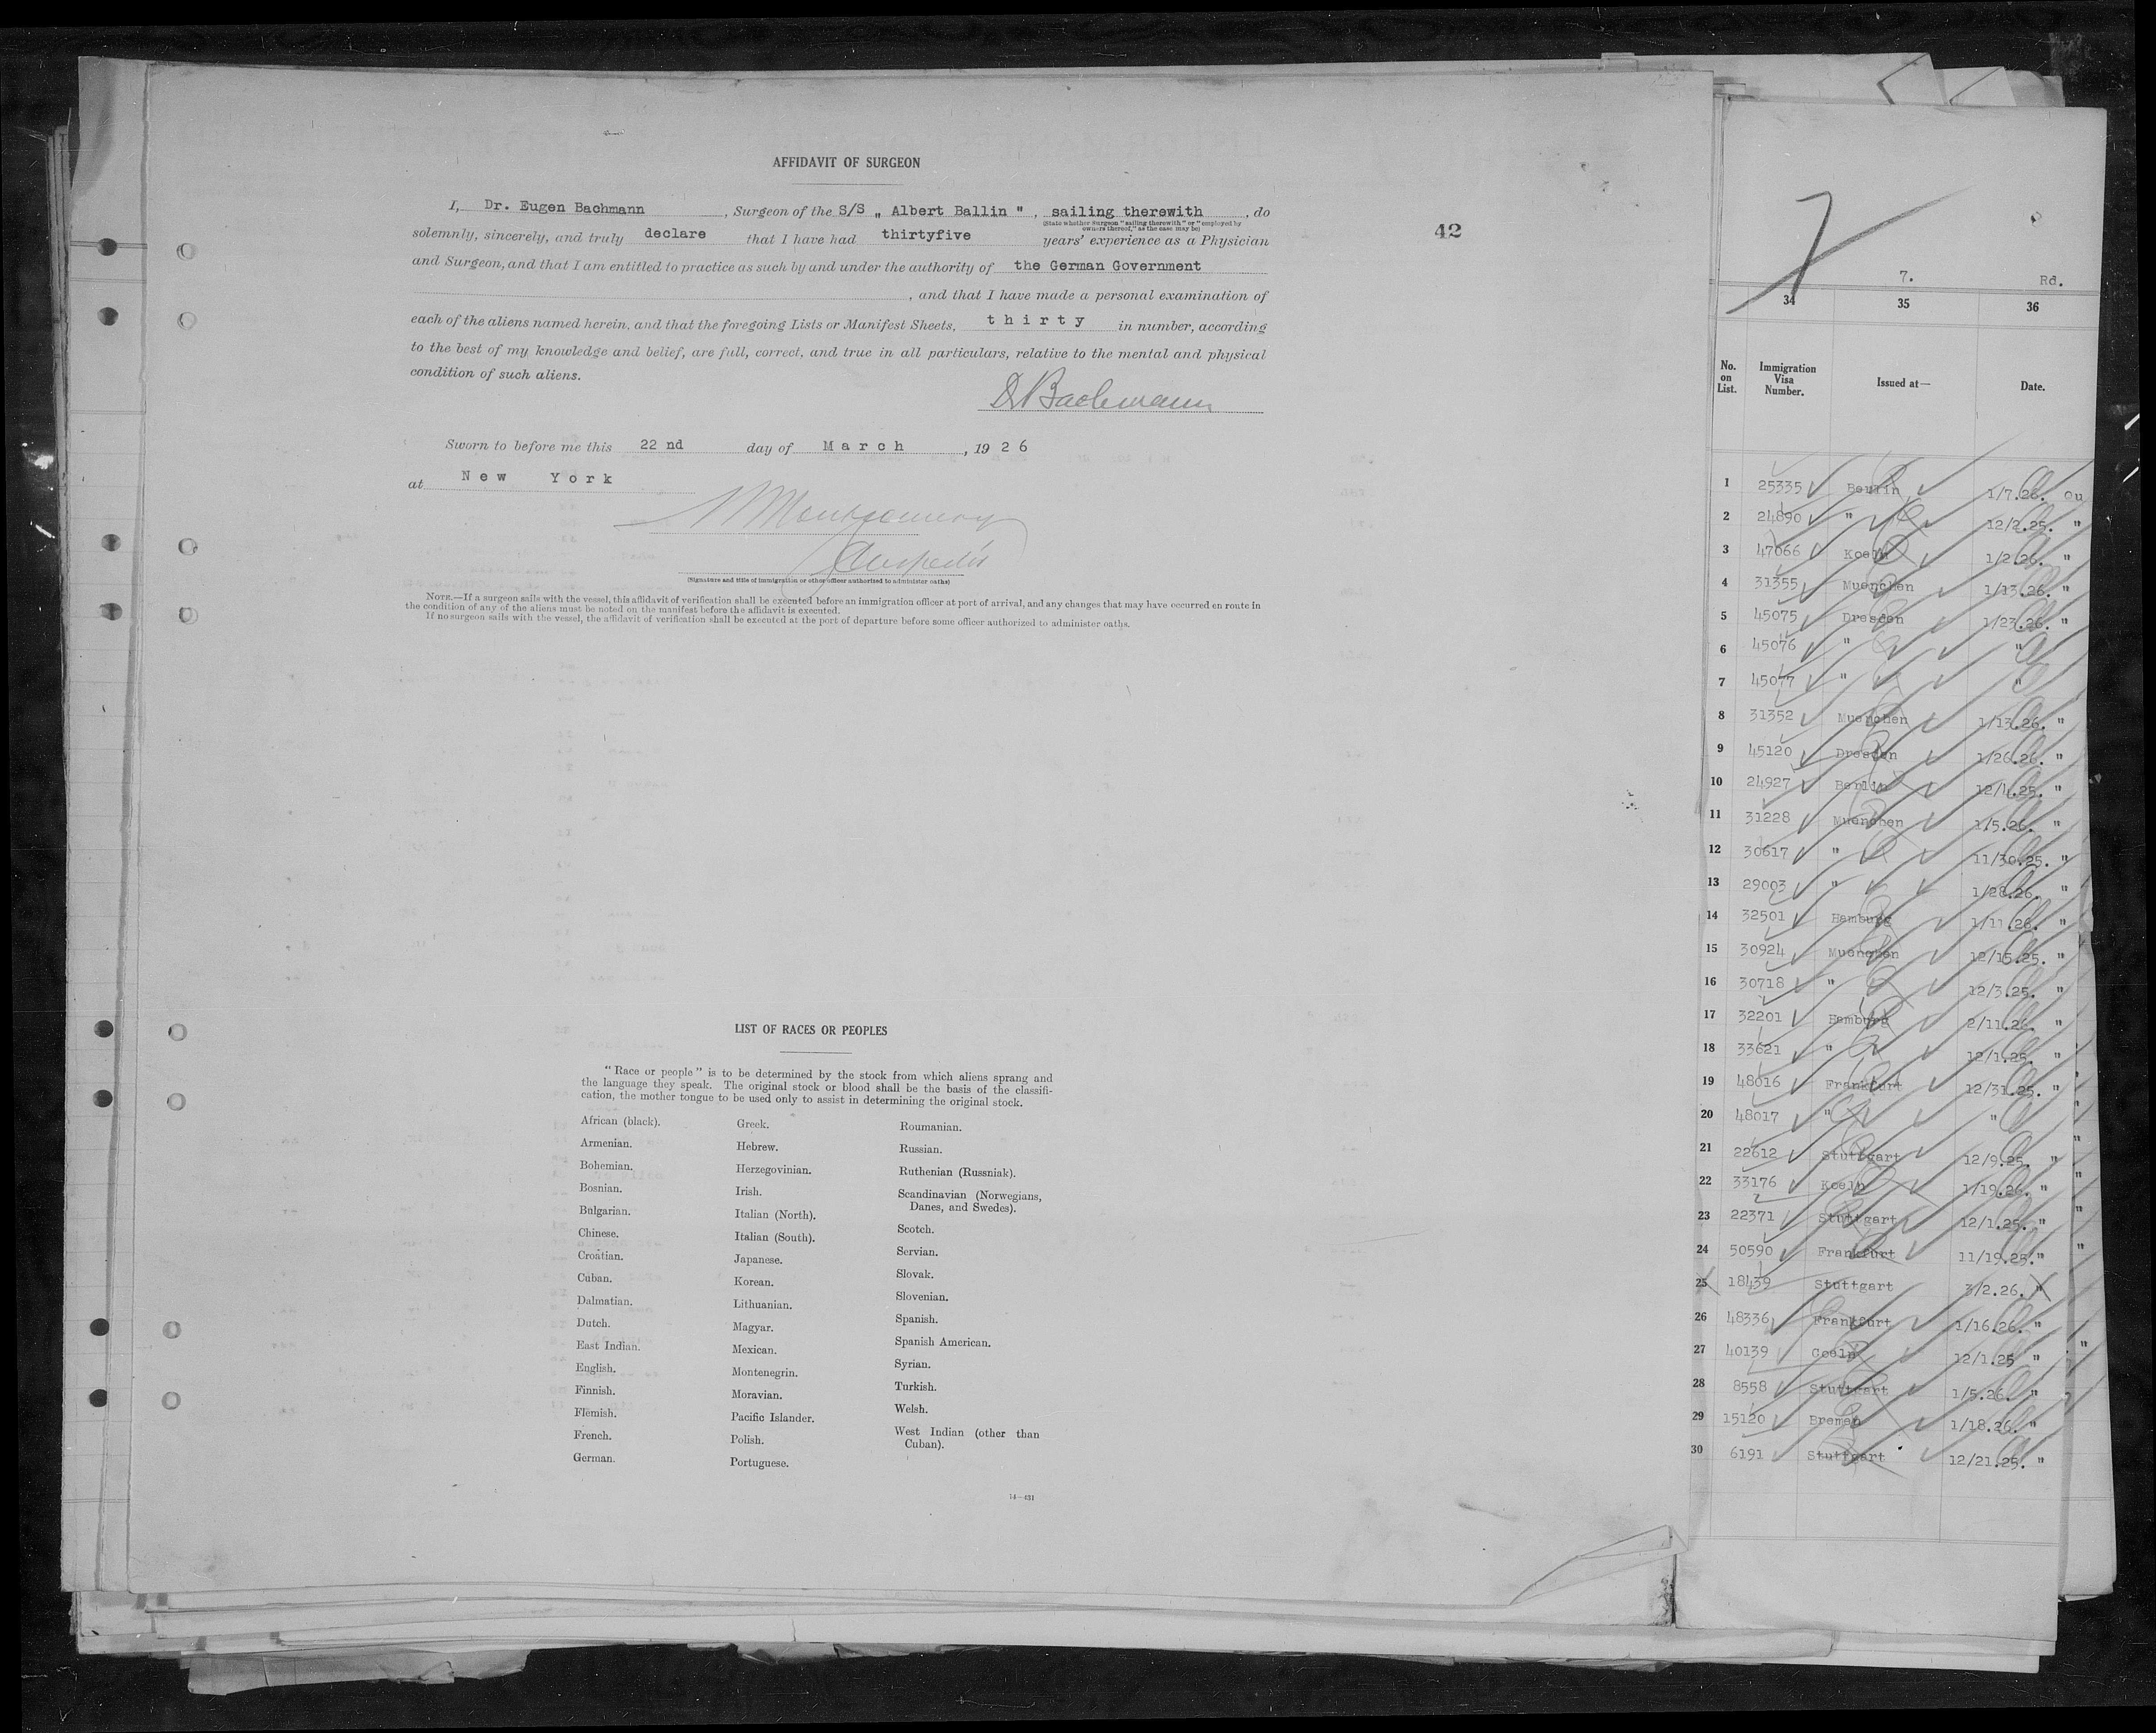 AFFIDAVIT OF SURGEON
I, Dr. Eugen Bachmann, Surgeon of the S/S „ Albert Ballin ", sailing therewith, do
(State whether Surgeon "sailing therewith" or "employed by
owners thereof," as the case may be)
solemnly, sincerely, and truly declare that I have had thirtyfive years' experience as a Physician
and Surgeon, and that I am entitled to practice as such by and under the authority of the German Government
, and that I have made a personal examination of
each of the aliens named herein, and that the foregoing Lists or Manifest Sheets, thirty in number, according
to the best of my knowledge and belief, are full, correct, and true in all particulars, relative to the mental and physical
condition of such aliens.
Dr Bachmann
Sworn to before me this 22 nd day of March, 19 2 6
at New York
Montgomery
(Signature and title of immigration or other officer authorized to administer oaths)
NOTE.—If a surgeon sails with the vessel, this affidavit of verification shall be executed before an immigration officer at port of arrival, and any changes that may have occurred en route in
the condition of any of the aliens must be noted on the manifest before the affidavit is executed.
If no surgeon sails with the vessel, the affidavit of verification shall be executed at the port of departure before some officer authorized to administer oaths.
42
LIST OF RACES OR PEOPLES
"Race or people" is to be determined by the stock from which aliens sprang and
the language they speak. The original stock or blood shall be the basis of the classifi-
cation, the mother tongue to be used only to assist in determining the original stock.
African (black).
Armenian.
Bohemian.
Bosnian.
Bulgarian.
Chinese.
Croatian.
Cuban.
Dalmatian.
Dutch.
East Indian.
English.
Finnish.
Flemish.
French.
German.
Greek.
Hebrew.
Herzegovinian.
Irish.
Italian (North).
Italian (South).
Japanese.
Korean.
Lithuanian.
Magyar.
Mexican.
Montenegrin.
Moravian.
Pacific Islander.
Polish.
Portuguese.
Roumanian.
Russian.
Ruthenian (Russniak).
Scandinavian (Norwegians,
Danes, and Swedes).
Scotch.
Servian.
Slovak.
Slovenian.
Spanish.
Spanish American.
Syrian.
Turkish.
Welsh.
West Indian (other than
Cuban).
14—431
7
7. Rd.
34 35 36
No. on List. Immigration Visa Number. Issued at— Date.
1 25335 Berlin 1/7.26. ou
2 24890 " 12/2.25. "
3 47066 Koeln 1/2.26. "
4 31355 Muenchen 1/13.26. "
5 45075 Dresden 1/23.26. "
6 45076 " "
7 45077 " "
8 31352 Muenchen 1/13.26. "
9 45120 Dresden 1/26.26. "
10 24927 Berlin 12/4.25. "
11 31228 Muenchen 1/5.26. "
12 30617 " 11/30.25. "
13 29003 " 1/28.26. "
14 32501 Hamburg 1/11.26. "
15 30924 Muenchen 12/15.25. "
16 30718 " 12/3.25. "
17 32201 Hamburg 2/11.26. "
18 33621 " 12/1.25. "
19 48016 Frankfurt 12/31.25. "
20 48017 " " "
21 22612 Stuttgart 12/9.25. "
22 33176 Koeln 1/19.26. "
23 22371 Stuttgart 12/1.25. "
24 50590 Frankfurt 11/19.25. "
25 18439 Stuttgart 3/2.26. "
26 48336 Frankfurt 1/16.26. "
27 40139 Coeln 12/1.25 "
28 8558 Stuttgart 1/5.26. "
29 15120 Bremen 1/18.26. "
30 6191 Stuttgart 12/21.25. "